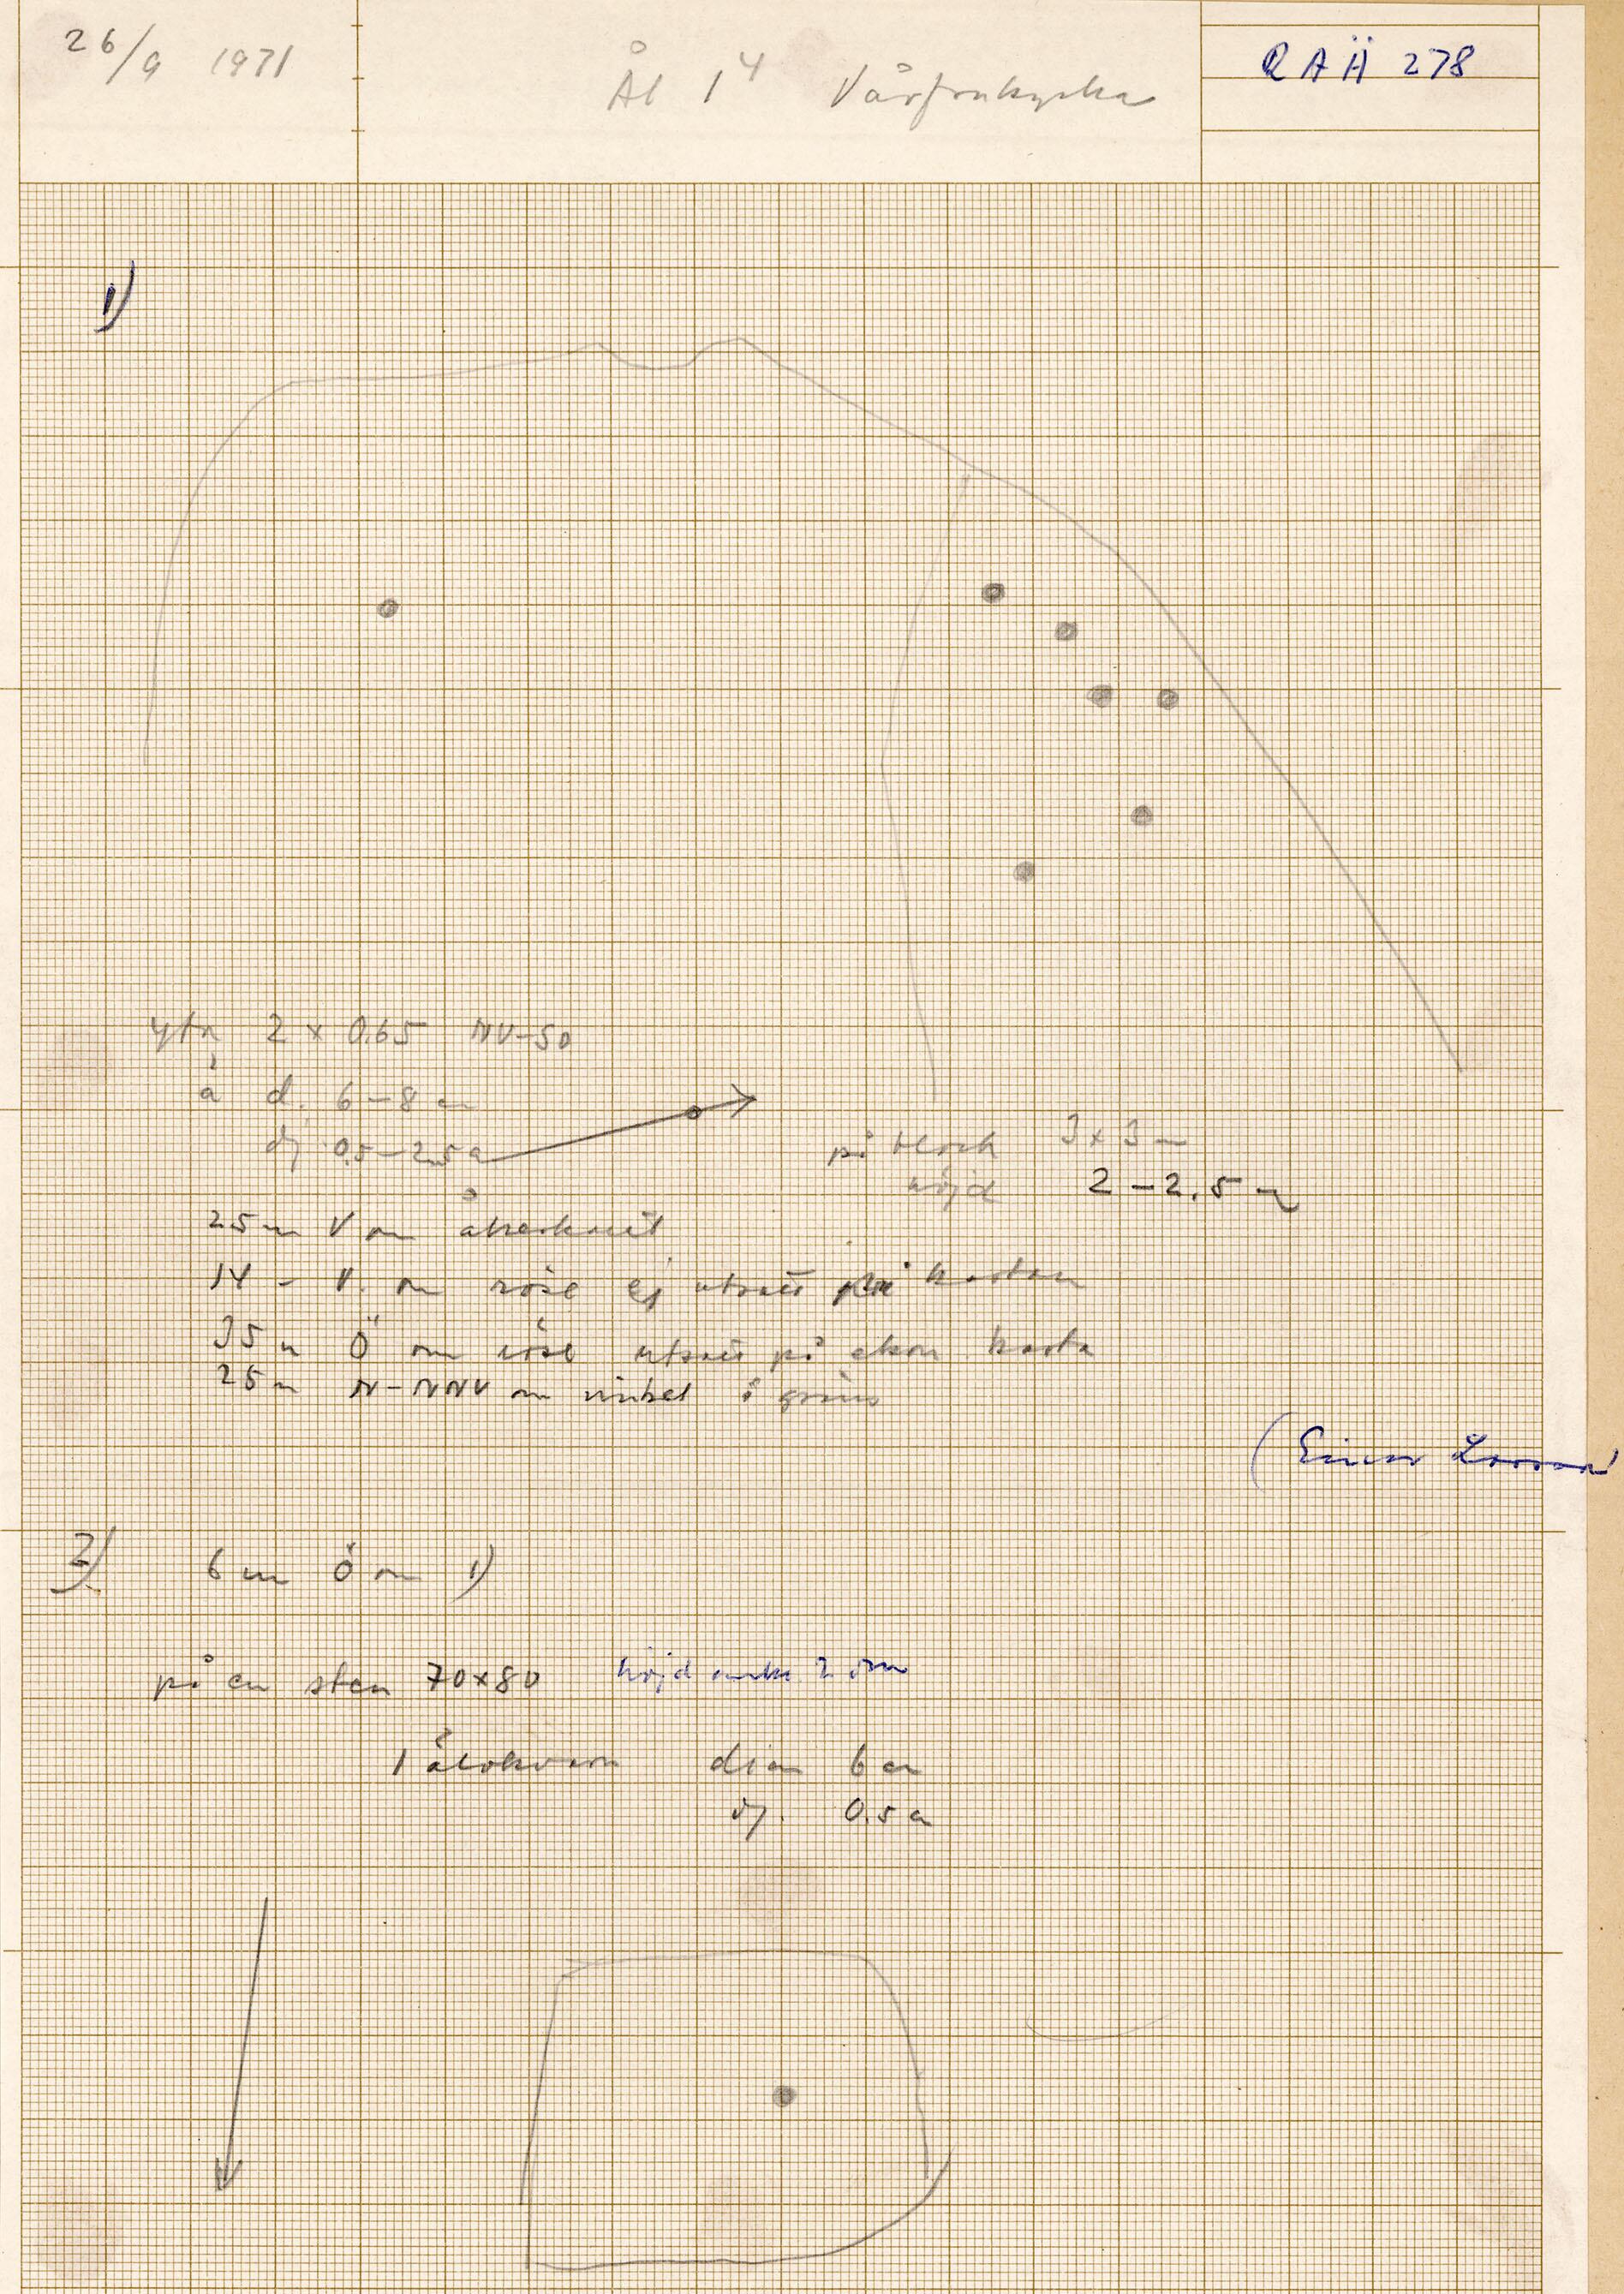 26/9 1971
Ål 1⁴ Vårfrukyrka
RAÄ 278
1)
yta 2 x 0.65 NV-SO
d. 6-8 cm
dj 0.5-2.5 cm
på block 3x3 m
höjd 2-2.5 m
25 m V om åkerkant
14 m V. om röse ej utsatt på kartan
35 m Ö om röse utsatt på ekon karta
25 m N-NNV om vinkel i gräns
(Einar Larsson)
2) 6 m Ö om 1)
på en sten 70x80 höjd
1 älvkvarn diam 6 cm
dj. 0.5 cm